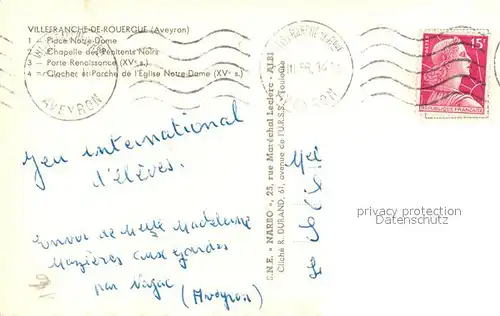 VILLEFRANCHE-DE-ROUERGUE (Aveyron)
1 — Place Notre-Dame
2 — Chapelle des Pénitents Noirs
3 — Porte Renaissance (XVe s.)
4 — Clocher et Porche de l'Eglise Notre-Dame (XVe s.)
AVEYRON
15F
REPUBLIQUE FRANÇAISE
Jeu international
d'élèves.
Envoi de Melle Madeleine
Mazières
par Najac
(Aveyron)
S.N.E. "NARBO", 25, rue Maréchal Leclerc - ALBI
Cliché R. DURAND, 61, avenue de l'U.R.S.S. - Toulouse
Mel
privacy protection
www.oldthing.de